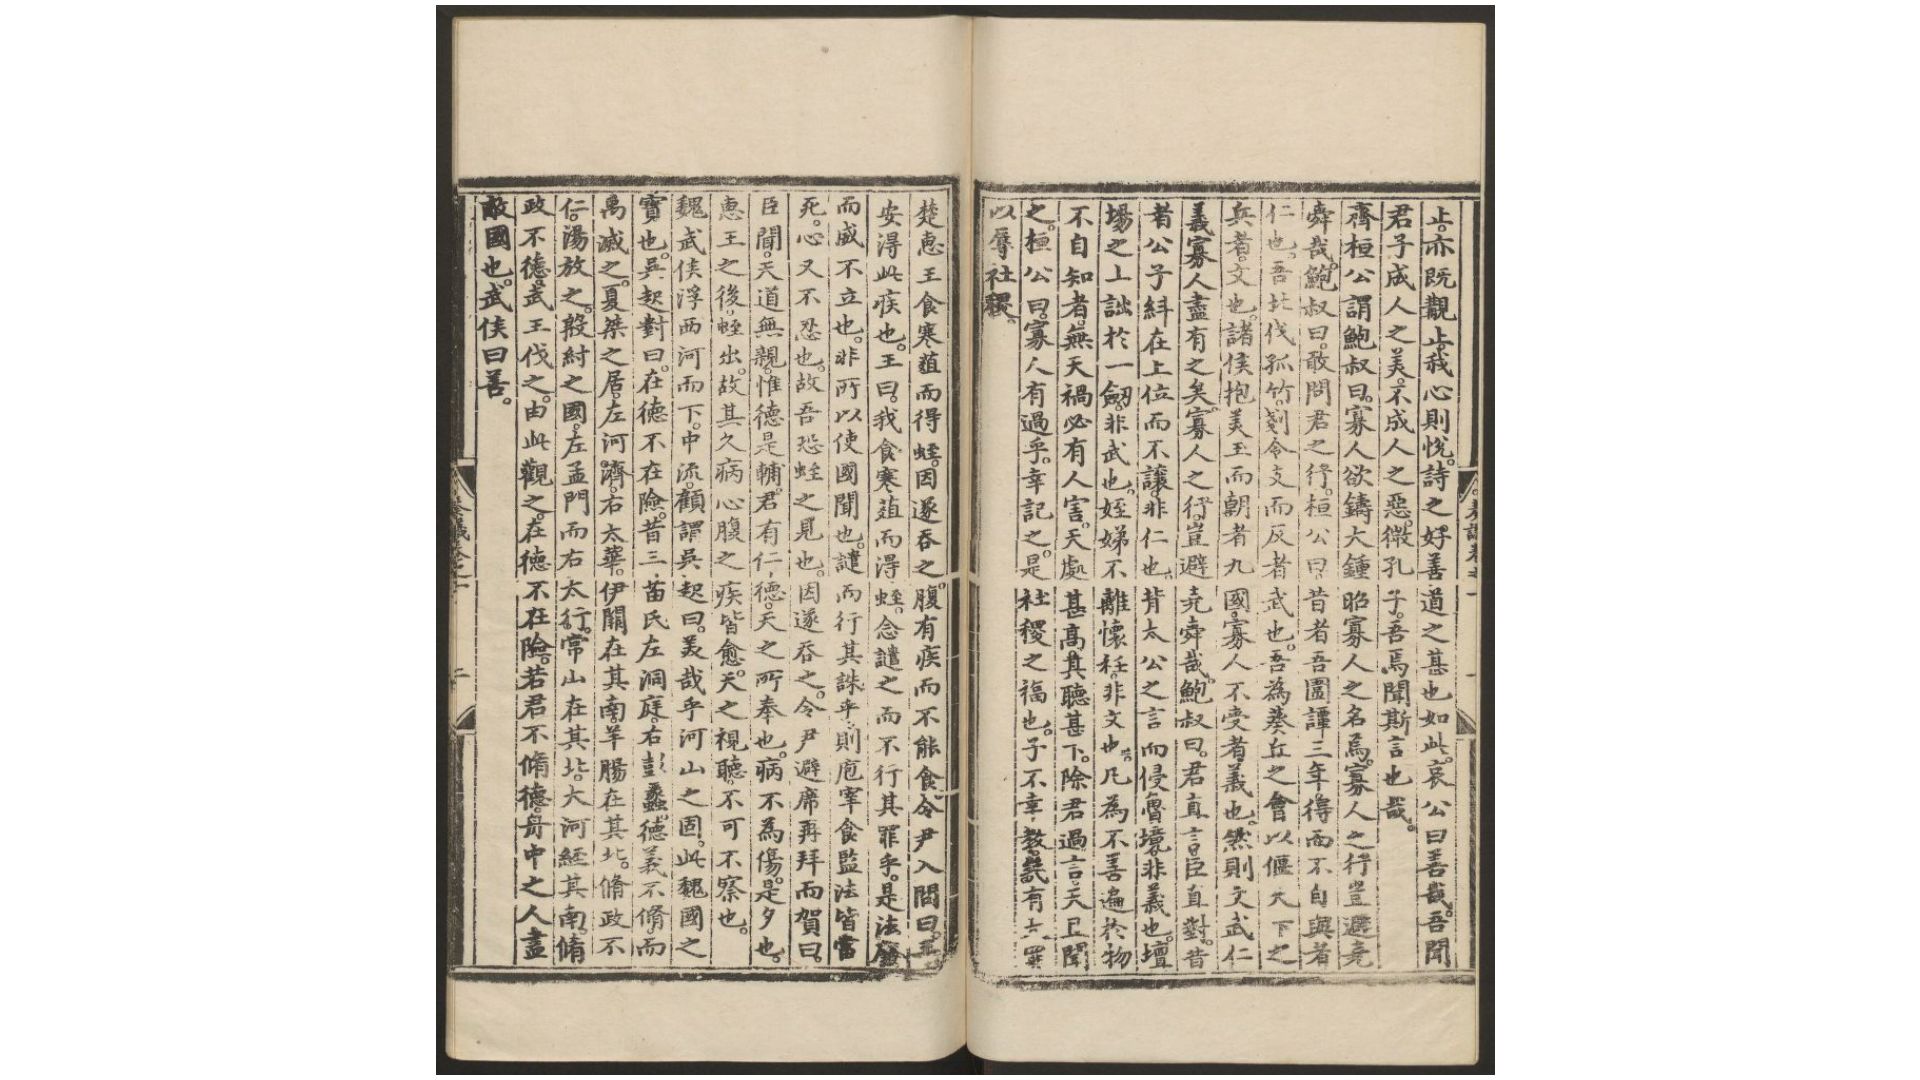 止。亦既觀止。我心則悅。詩之好善道之甚也如此。哀公曰善哉。吾聞
君子成人之美。不成人之惡。微孔子。吾焉聞斯言也哉。
齊桓公謂鮑叔曰。寡人欲鑄大鍾昭寡人之名焉。寡人之行豈避堯
舜哉。鮑叔曰。敢問君之行。桓公曰。昔者吾圖譚三年得而不自與者
仁也。吾北伐孤竹。剗令支而反者武也。吾為葵丘之會以偃天下之
兵者。文也。諸侯抱美玉而朝者九國。寡人不受者義也。然則文武仁
義寡人盡有之矣。寡人之行。豈避堯舜哉。鮑叔曰。君直言臣直對。昔
者公子糾在上位而不讓。非仁也。背太公之言而侵魯境。非義也。壇
場之上詘於一劒。非武也。姪娣不離懷衽。非文也。凡為不善遍於物
不自知者。無天禍必有人害。天處甚高。其聽甚下。除君過言。天且聞
之。桓公曰。寡人有過乎。幸記之。是社稷之福也。子不幸教。幾有大罪
以辱社稷。
楚惠王食寒葅而得蛭。因遂吞之。腹有疾而不能食。令尹入問曰。王
安得此疾也。王曰。我食寒葅而得蛭。念譴之而不行其罪乎。是法廢
而威不立也。非所以使國聞也。譴而行其誅乎。則庖宰食監法皆當
死。心又不忍也。故吾恐蛭之見也。因遂吞之。令尹避席再拜而賀曰。
臣聞。天道無親。惟德是輔。君有仁德。天之所奉也。病不為傷。是夕也。
惠王之後蛭出。故其久病心腹之疾皆愈。天之視聽。不可不察也。
魏武侯浮西河而下。中流。顧謂吳起曰。美哉乎河山之固。此魏國之
寶也。吳起對曰。在德不在險。昔三苗氏左洞庭。右彭蠡。德義不脩。而
禹滅之。夏桀之居。左河濟。右太華。伊闕在其南。羊腸在其北。脩政不
仁。湯放之。殷紂之國。左孟門而右太行。常山在其北。大河經其南。脩
政不德。武王伐之。由此觀之。在德不在險。若君不脩德。舟中之人盡
敵國也。武侯曰善。